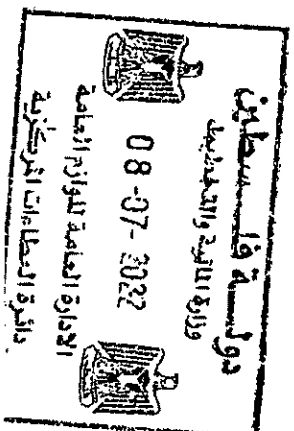 دولة فلسطين
وزارة المالية والتخطيط
08-07-2022
الادارة العامة للوازم العامة
دائرة العطاءات المركزية